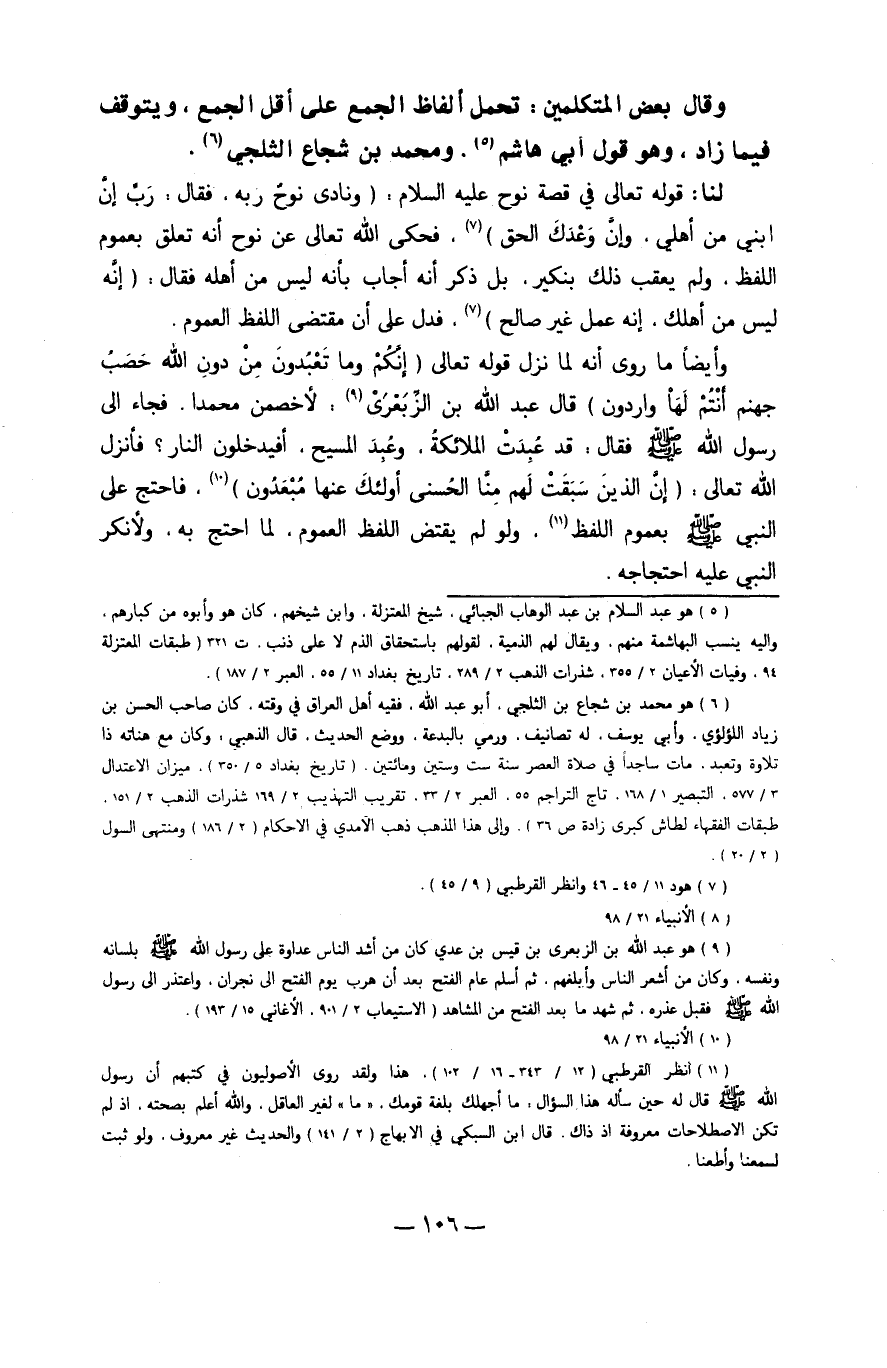 وقال بعض المتكلمين : تحمل ألفاظ الجمع على أقل الجمع ، ويتوقف
فيما زاد ، وهو قول أبي هاشم (٥) . ومحمد بن شجاع الثلجي (٦) .
لنا : قوله تعالى في قصة نوح عليه السلام : ( ونادى نوحٌ ربه ، فقال : رَبِّ إنَّ
ابني من أهلي ، وإنَّ وَعْدَكَ الحق ) (٧) ، فحكى الله تعالى عن نوح أنه تعلق بعموم
اللفظ ، ولم يعقب ذلك بنكير ، بل ذكر أنه أجاب بأنه ليس من أهله فقال : ( إنَّه
ليس من أهلك ، إنه عمل غير صالح ) (٧) ، فدل على أن مقتضى اللفظ العموم .
وأيضاً ما روى أنه لما نزل قوله تعالى ( إنَّكُمْ وما تَعْبُدونَ مِنْ دونِ الله حَصَبُ
جهنم أَنْتُمْ لَهَا واردون ) قال عبد الله بن الزِّبَعْرَىْ (٩) : لأخصمن محمدا . فجاء الى
رسول الله ﷺ فقال : قد عُبِدَتْ الملائكةُ ، وعُبِدَ المسيح ، أفيدخلون النار ؟ فأنزل
الله تعالى : ( إنَّ الذينَ سَبَقَتْ لَهم مِنَّا الحُسنى أولئكَ عنها مُبْعَدُون ) (١٠) ، فاحتج على
النبي ﷺ بعموم اللفظ (١١) ، ولو لم يقتض اللفظ العموم ، لما احتج به ، ولأنكر
النبي عليه احتجاجه .
( ٥ ) هو عبد السلام بن عبد الوهاب الجبائي ، شيخ المعتزلة ، وابن شيخهم ، كان هو وأبوه من كبارهم ،
واليه ينسب البهاشمة منهم ، ويقال لهم الذمية ، لقولهم باستحقاق الذم لا على ذنب . ت ٣٢١ ( طبقات المعتزلة
٩٤ ، وفيات الأعيان ٢ / ٣٥٥ ، شذرات الذهب ٢ / ٢٨٩ ، تاريخ بغداد ١١ / ٥٥ ، العبر ٢ / ١٨٧ ) .
( ٦ ) هو محمد بن شجاع بن الثلجي ، أبو عبد الله ، فقيه أهل العراق في وقته ، كان صاحب الحسن بن
زياد اللؤلؤي ، وأبي يوسف ، له تصانيف ، ورمي بالبدعة ، ووضع الحديث ، قال الذهبي : وكان مع هناته ذا
تلاوة وتعبد ، مات ساجداً في صلاة العصر سنة ست وستين ومائتين . ( تاريخ بغداد ٥ / ٣٥٠ ) ، ميزان الاعتدال
٣ / ٥٧٧ ، التبصير ١ / ١٦٨ ، تاج التراجم ٥٥ ، العبر ٢ / ٣٣ ، تقريب التهذيب ٢ / ١٦٩ شذرات الذهب ٢ / ١٥١ ،
طبقات الفقهاء لطاش كبرى زادة ص ٣٦ ) . وإلى هذا المذهب ذهب الآمدي في الاحكام ( ٢ / ١٨٦ ) ومنتهى السول
( ٢ / ٢٠ ) .
( ٧ ) هود ١١ / ٤٥ ـ ٤٦ وانظر القرطبي ( ٩ / ٤٥ ) .
( ٨ ) الأنبياء ٢١ / ٩٨
( ٩ ) هو عبد الله بن الزبعرى بن قيس بن عدي كان من أشد الناس عداوة على رسول الله ﷺ بلسانه
ونفسه ، وكان من أشعر الناس وأبلغهم ، ثم أسلم عام الفتح بعد أن هرب يوم الفتح الى نجران ، واعتذر الى رسول
الله ﷺ فقبل عذره ، ثم شهد ما بعد الفتح من المشاهد ( الاستيعاب ٢ / ٩٠١ ، الأغاني ١٥ / ١٩٣ ) .
( ١٠ ) الأنبياء ٢١ / ٩٨
( ١١ ) أنظر القرطبي ( ١٢ / ٣٤٣ ـ ١٦ / ١٠٢ ) ، هذا ولقد روى الأصوليون في كتبهم أن رسول
الله ﷺ قال له حين سأله هذا السؤال : ما أجهلك بلغة قومك ، « ما » لغير العاقل ، والله أعلم بصحته ، اذ لم
تكن الاصطلاحات معروفة اذ ذاك . قال ابن السبكي في الابهاج ( ٢ / ١٤١ ) والحديث غير معروف ، ولو ثبت
لسمعنا وأطعنا .
— ١٠٦ —